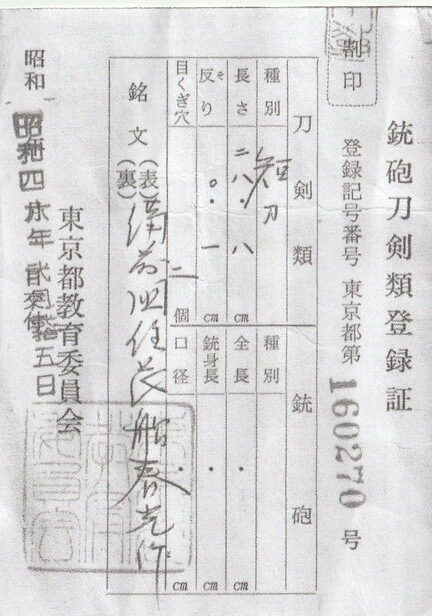 銃砲刀剣類登録証
割印
登録記号番号 東京都第 160270 号
刀剣類
銃砲
種別 短刀
種別
長さ 二八.八 cm
全長 . cm
反り 〇.一 cm
そ
銃身長 . cm
目くぎ穴 二 個
口径 . cm
銘文 (表) (裏) 備前国住長船春光作
東京都教育委員会
昭和 昭和四 年 五日